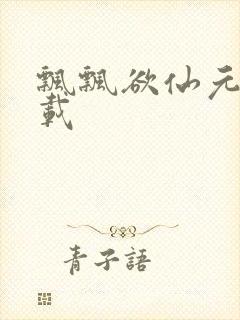 飄飄欲仙元
載
青子語